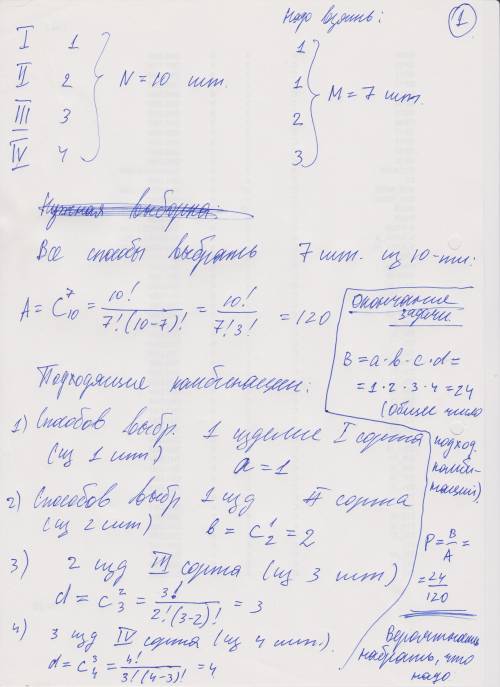 Надо взять: 1
I 1 1
II 2 N = 10 шт. 1 M = 7 шт.
III 3 2
IV 4 3
Нужная выборка:
Все способы выбрать 7 шт. из 10-ти:
A = C₁₀⁷ = 10!/7!(10-7)! = 10!/7!3! = 120
Подходящие комбинации:
1) Способов выбр. 1 изделие I сорта
(из 1 шт) a = 1
2) Способов выбр 1 изд II сорта
(из 2 шт) b = C₂¹ = 2
3) 2 изд III сорта (из 3 шт)
d = C₃² = 3!/2!(3-2)! = 3
4) 3 изд IV сорта (из 4 шт.)
d = C₄³ = 4!/3!(4-3)! = 4
Окончание
задачи
B = a·b·c·d =
= 1·2·3·4 = 24
(Общее число
подход.
комби-
наций).
P = B/A =
= 24/120
Вероятность
набрать, что
надо